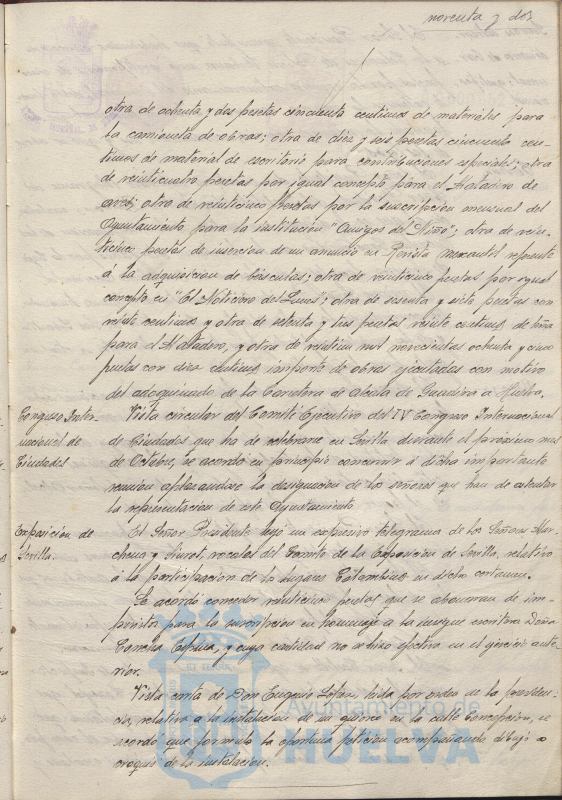 noventa y dos
otra de ochenta y dos pesetas cincuenta centimos de materiales para
la camioneta de obras; otra de diez y seis pesetas cincuenta cen-
timos de material de escritorio para contribuciones especiales; otra
de veinticuatro pesetas por igual concepto para el Matadero de
aves; otra de veinticinco pesetas por la suscripcion mensual del
Ayuntamiento para la institución "Amigos del Niño"; otra de vein-
ticinco pesetas de insercion de un anuncio en Revista mercantil respecto
á la adquisicion de básculas; otra de veinticinco pesetas por igual
concepto en "El Noticiero del Lunes"; otra de sesenta y siete pesetas con
veinte centimos y otra de setenta y tres pesetas veinte centimos de leña
para el Matadero, y otra de mil novecientas ochenta y cinco
pesetas con diez centimos importe de obras ejecutadas con motivo
del adoquinado de la Carretera de Alcalá de Guadaira a Huelva.
Congreso Inter-
nacional de
Ciudades
Vista circular del Comité Ejecutivo del IV Congreso Internacional
de Ciudades que ha de celebrarse en Sevilla durante el próximo mes
de Octubre, se acordó en principio concurrir á dicha importante
reunion aplazandose la designación de los señores que han de ostentar
la representación de este Ayuntamiento.
Exposición de
Sevilla.
El Señor Presidente leyó un expresivo telegrama de los Señores Mar-
chena y Siurot, vocales del Comité de la Exposicion de Sevilla, relativo
á la participación de los lugares Colombinos en dicho certamen.
Se acordó conceder veinticinco pesetas que se abonaran de im-
previstos para la suscripcion en homenaje a la insigne escritora Doña
Concha Espina, y cuya cantidad no se hizo efectiva en el ejercicio ante-
rior.
Vista carta de Don Eugenio López, leida por orden de la presiden-
cia, relativa á la instalacion de un quiosco en la calle Concepción, se
acordó que formule la oportuna peticion acompañando dibujo o
croquis de la instalación.
Ayuntamiento de
HUELVA